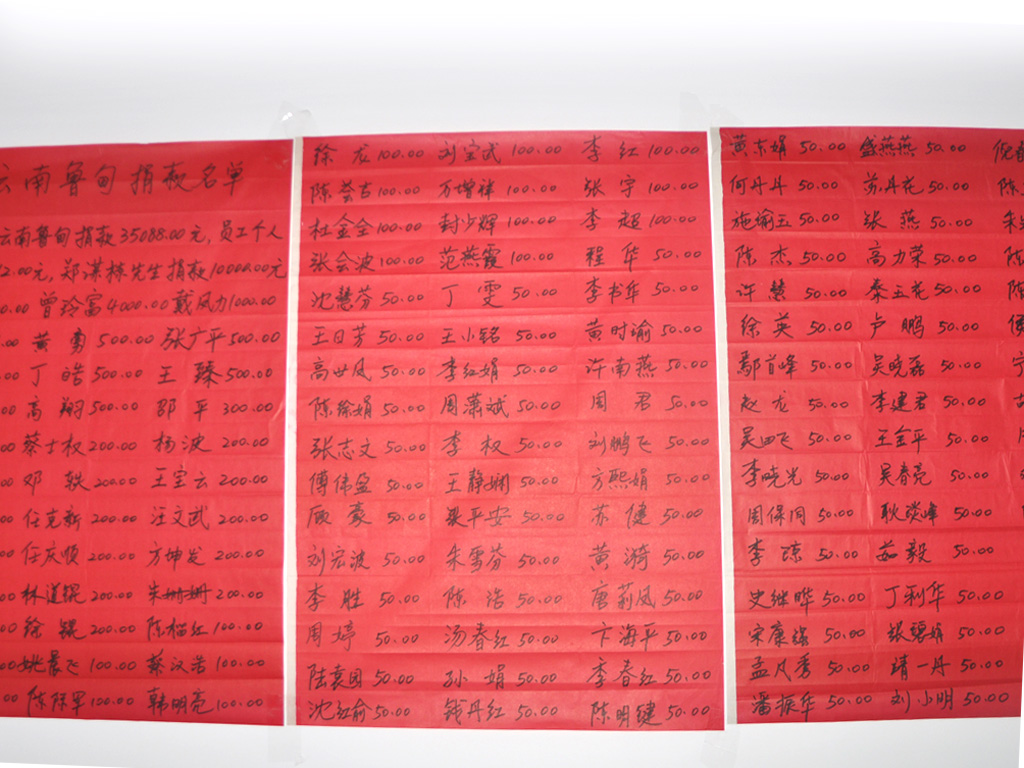 云南鲁甸捐款名单
云南鲁甸捐款35088.00元,员工个人
2.00元,郑洪栋先生捐款10000.00元
0.00 曾玲富4000.00 戴凤力1000.00
.00 黄 勇 500.00 张广平500.00
.00 丁 皓 500.00 王 臻 500.00
00 高 翔 500.00 邵 平 300.00
00 蔡士权 200.00 杨 波 200.00
00 邓 轶 200.00 王宝云 200.00
00 任克新 200.00 汪文武 200.00
00 任庆顺 200.00 方坤发 200.00
00 林道锟 200.00 朱姗姗 200.00
00 徐 锟 200.00 陈榴红 100.00
00 姚晨飞 100.00 蔡汉浩 100.00
00 陈保军 100.00 韩明亮 100.00
徐 龙 100.00 刘宝武 100.00 李 红 100.00
陈荟吉 100.00 万增祥 100.00 张 宇 100.00
杜金全 100.00 封少辉 100.00 李 超 100.00
张会波 100.00 范燕霞 100.00 程 华 50.00
沈慧芬 50.00 丁 雯 50.00 李书华 50.00
王日芳 50.00 王小铭 50.00 黄时瑜 50.00
高世凤 50.00 李红娟 50.00 许南燕 50.00
陈徐娟 50.00 周潇斌 50.00 周 君 50.00
张志文 50.00 李 权 50.00 刘鹏飞 50.00
傅伟盈 50.00 王静娴 50.00 方熙娟 50.00
顾 豪 50.00 梁平安 50.00 苏 健 50.00
刘宏波 50.00 朱雪芬 50.00 黄 漪 50.00
李 胜 50.00 陈 浩 50.00 唐莉凤 50.00
周 婷 50.00 汤春红 50.00 卞海平 50.00
陆袁园 50.00 孙 娟 50.00 李春红 50.00
沈红俞 50.00 钱丹红 50.00 陈明键 50.00
黄东娟 50.00 盛燕燕 50.00 倪
何丹丹 50.00 苏丹花 50.00 陈
施瑜五 50.00 张 燕 50.00 朱
陈 杰 50.00 高力荣 50.00 陈
许 慧 50.00 秦玉花 50.00 陈
徐 英 50.00 卢 鹏 50.00
鄢首峰 50.00 吴晓磊 50.00
赵 龙 50.00 李建君 50.00
吴田飞 50.00 王全平 50.00
李晓光 50.00 吴春亮 50.00
周保同 50.00 耿灿峰 50.00
李 琼 50.00 茹 毅 50.00
史继晔 50.00 丁利华 50.00
宋康 50.00 银碧娟 50.00
孟凡秀 50.00 靖一丹 50.00
潘振华 50.00 刘小明 50.00